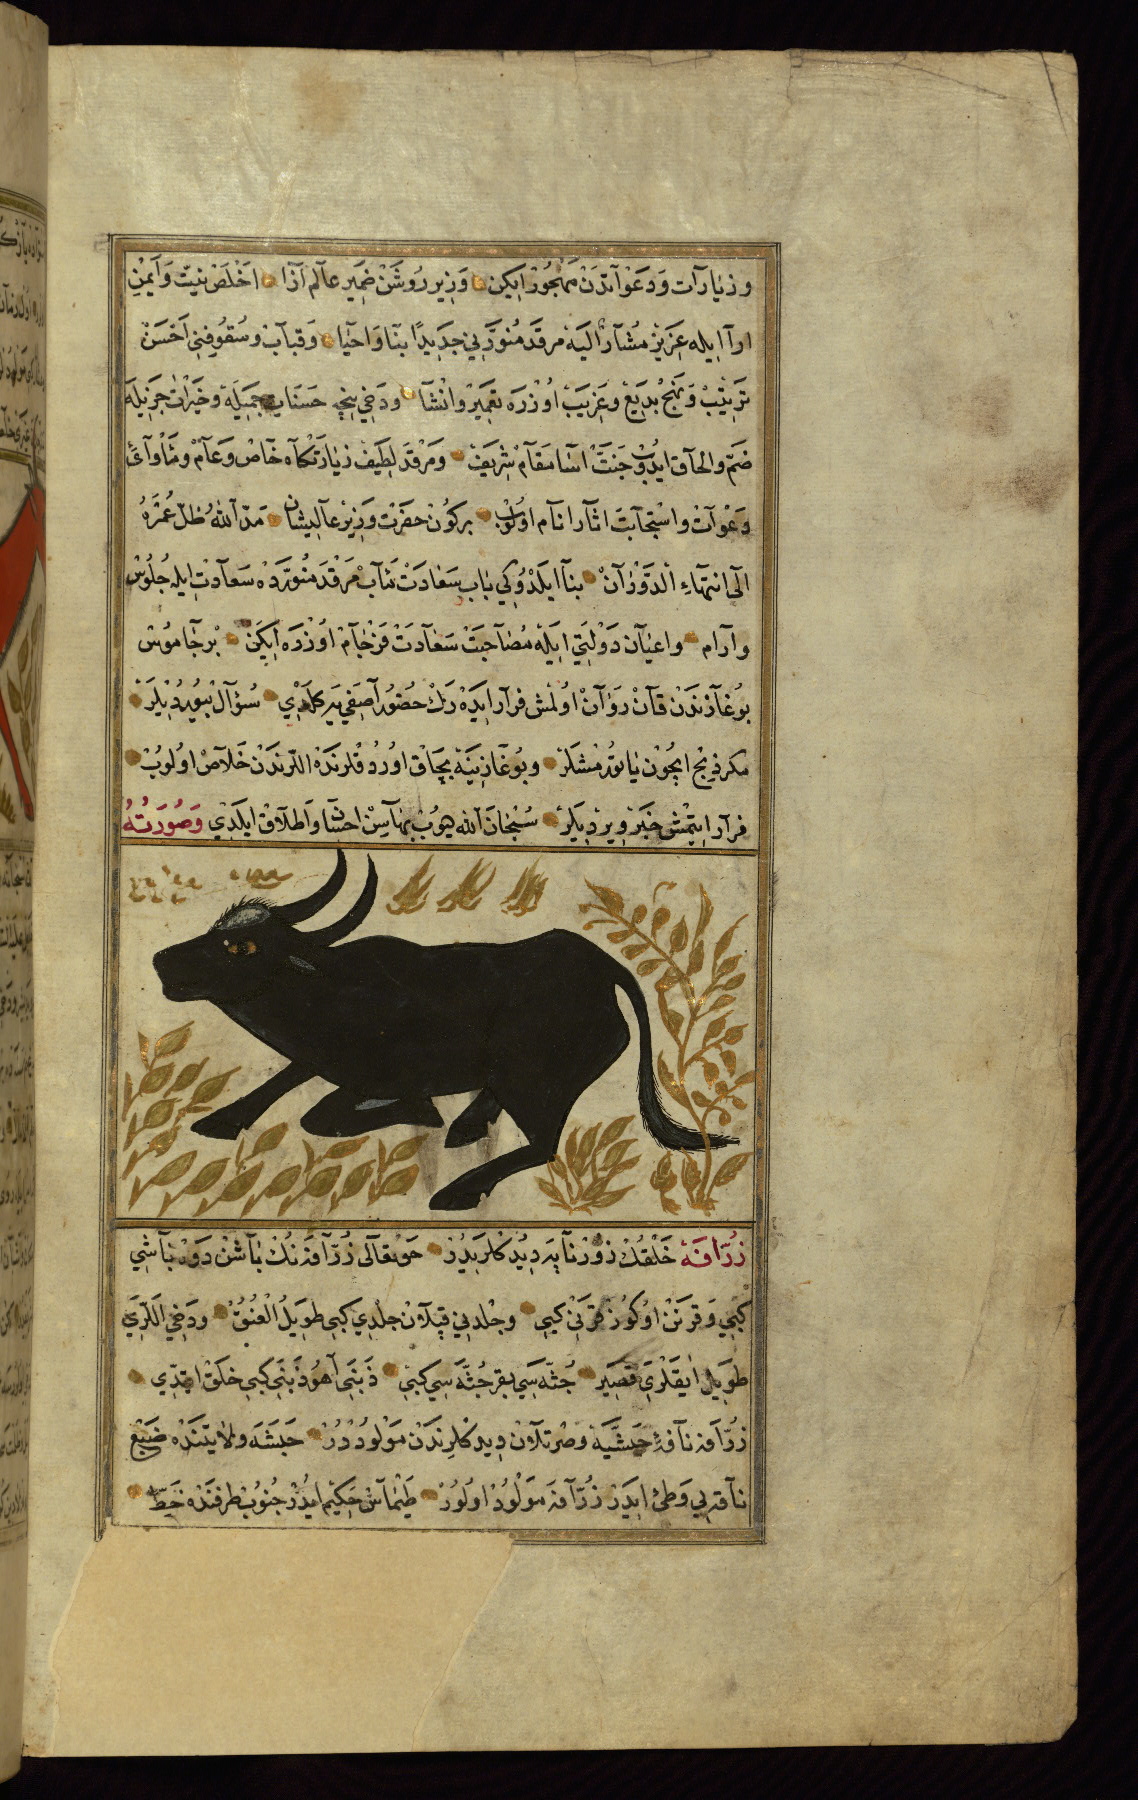 وزیارات ودعواتدن مهجور ایکن وزیر روشن ضمیر عالم آرا اخلص نیت وایمن
ارا ایله عزیز مشار الیه مرقد منورینی جدیدا بنا واحیا وقباب وسقوفنی احسن
ترتیب ونهج بدیع وغریب اوزره تعمیر وانشا ودخی نیجه حسنات جمیله وخیرات جزیله
ضم والحاق ایدوب جنت اسا مقام شریف ومرقد لطیف زیارتکاه خاص وعام
دعوات واستجابت اثار انام اولوب برکون حضرت وزیر عالیشان مد الله ظل عمره
الی انتهاء الدوران بنا ایلدوکی باب سعادت مآب مرقد منورده سعادت ایله جلوس
وارام واعیان دولتی ایله مصاحبت سعادت فرجام اوزره ایکن بر جاموس
بوغازندن قان روان اولمش فرار ایده رك حضور آصفی یه کلدی سؤال بیوردیلر
مکر ذبح ایچون یاتورمشلر وبوغازینه بچاق اوردقلرنده اللرندن خلاص اولوب
فرار ایتمش خبر ویردیلر سبحان الله هیوب بهاسن احسان واطلاق ایلدی وصورته
زرافه خلقك زورنابه دیدکلریدر حق تعالی زرافه نك باشن دوه باشی
کبی وقرنن اوکوز قرنی کبی وجلدنی قپلان جلدی کبی طویل العنق ودخی اللری
طویل ایقلری قصیر جثه سی بقر جثه سی کبی ذنبی آهو ذنبی کبی خلق ایتدی
زرافه ناقۀ حبشیه وصرتلان دیدکلرندن مولوددر حبشه ولایتنده ضبع
ناقه یی وطئ ایدر زرافه مولود اولور طیماس حکیم ایدر جنوب طرفنده خط